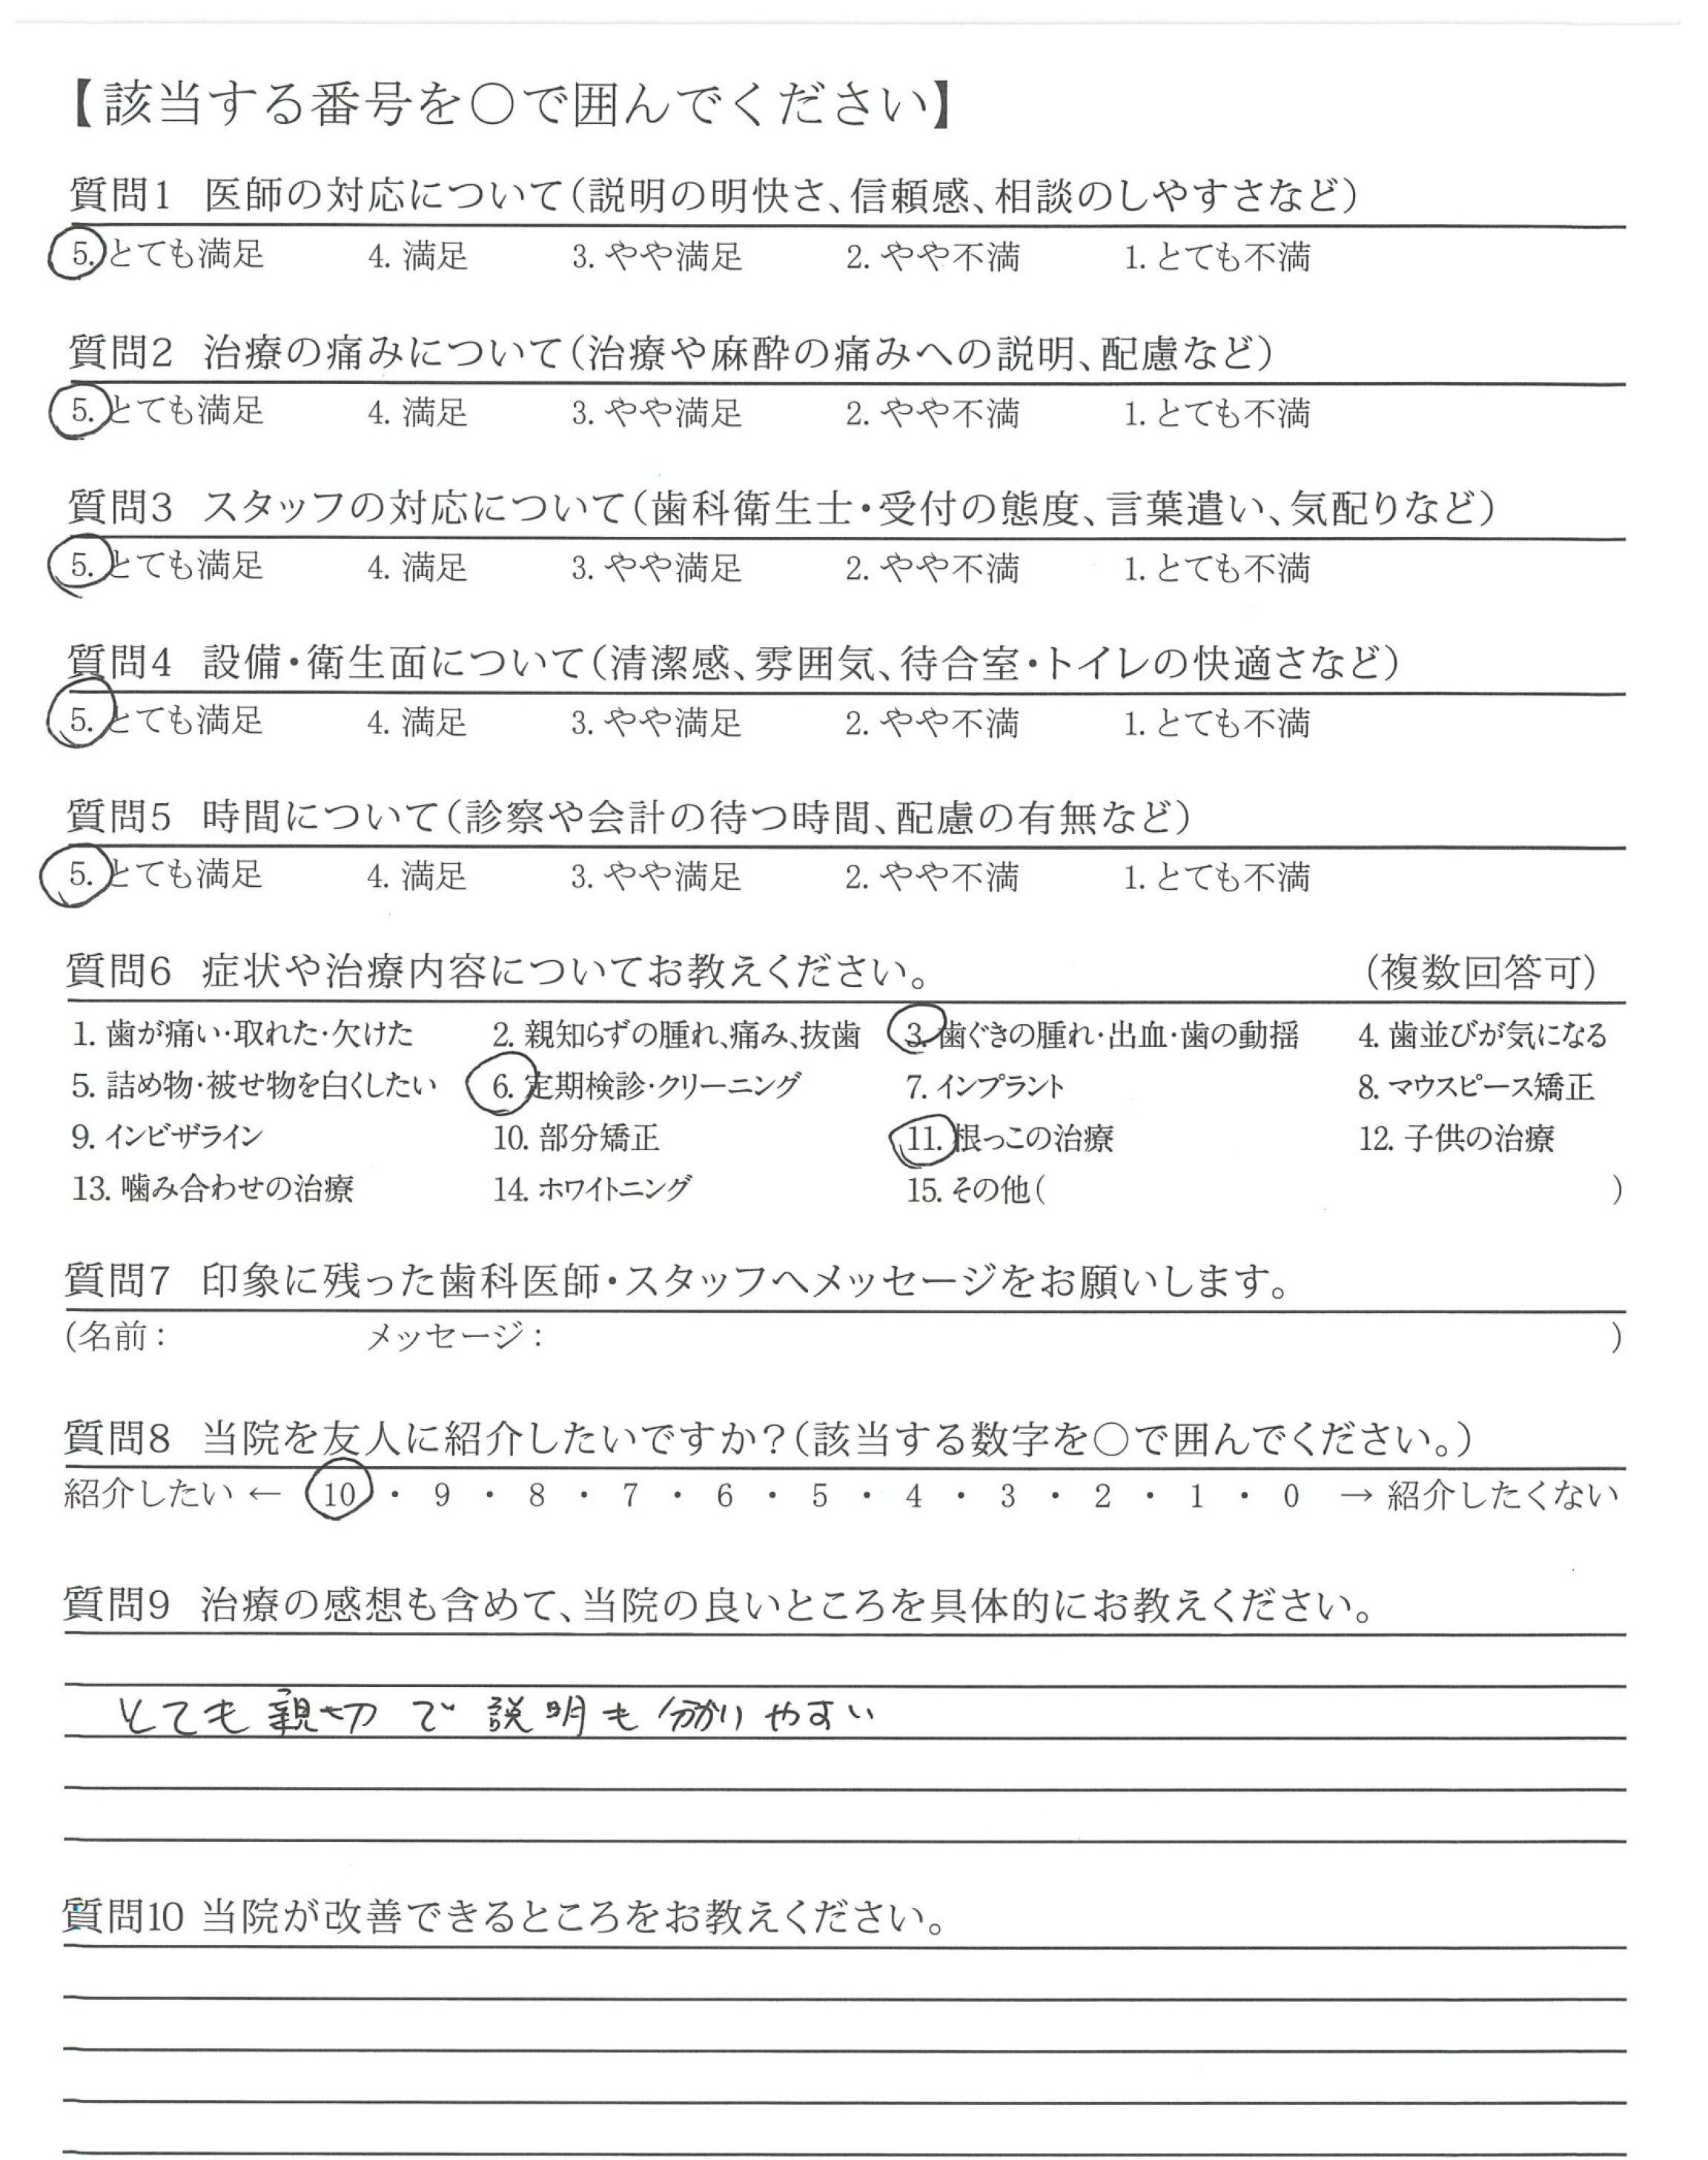 【該当する番号を〇で囲んでください】
質問1 医師の対応について（説明の明快さ、信頼感、相談のしやすさなど）
5. とても満足 4. 満足 3. やや満足 2. やや不満 1. とても不満
質問2 治療の痛みについて（治療や麻酔の痛みへの説明、配慮など）
5. とても満足 4. 満足 3. やや満足 2. やや不満 1. とても不満
質問3 スタッフの対応について（歯科衛生士・受付の態度、言葉遣い、気配りなど）
5. とても満足 4. 満足 3. やや満足 2. やや不満 1. とても不満
質問4 設備・衛生面について（清潔感、雰囲気、待合室・トイレの快適さなど）
5. とても満足 4. 満足 3. やや満足 2. やや不満 1. とても不満
質問5 時間について（診察や会計の待つ時間、配慮の有無など）
5. とても満足 4. 満足 3. やや満足 2. やや不満 1. とても不満
質問6 症状や治療内容についてお教えください。 （複数回答可）
1. 歯が痛い・取れた・欠けた 2. 親知らずの腫れ、痛み、抜歯 3. 歯ぐきの腫れ・出血・歯の動揺 4. 歯並びが気になる
5. 詰め物・被せ物を白くしたい 6. 定期検診・クリーニング 7. インプラント 8. マウスピース矯正
9. インビザライン 10. 部分矯正 11. 根っこの治療 12. 子供の治療
13. 噛み合わせの治療 14. ホワイトニング 15. その他（ ）
質問7 印象に残った歯科医師・スタッフへメッセージをお願いします。
（名前： メッセージ： ）
質問8 当院を友人に紹介したいですか？（該当する数字を〇で囲んでください。）
紹介したい ← 10 ・ 9 ・ 8 ・ 7 ・ 6 ・ 5 ・ 4 ・ 3 ・ 2 ・ 1 ・ 0 → 紹介したくない
質問9 治療の感想も含めて、当院の良いところを具体的にお教えください。
とても親切で説明も分かりやすい
質問10 当院が改善できるところをお教えください。